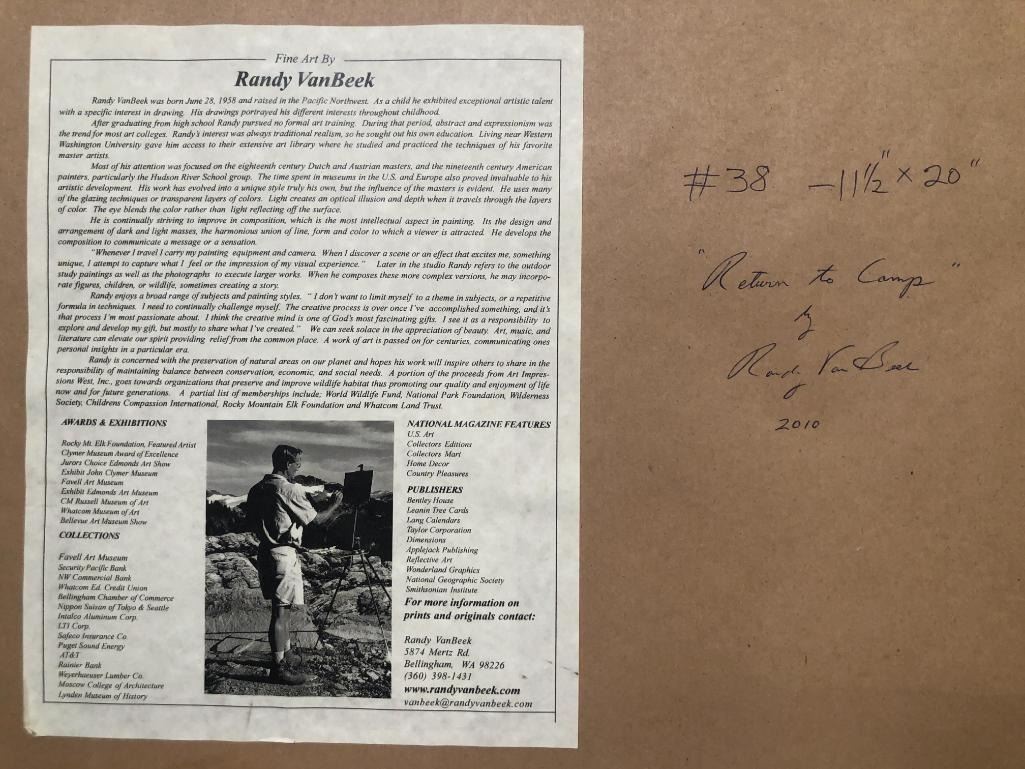 Fine Art By
Randy VanBeek
Randy VanBeek was born June 28, 1958 and raised in the Pacific Northwest. As a child he exhibited exceptional artistic talent
with a specific interest in drawing. His drawings portrayed his different interests throughout childhood.
After graduating from high school Randy pursued no formal art training. During that period, abstract and expressionism was
the trend for most art colleges. Randy's interest was always traditional realism, so he sought out his own education. Living near Western
Washington University gave him access to their extensive art library where he studied and practiced the techniques of his favorite
master artists.
Most of his attention was focused on the eighteenth century Dutch and Austrian masters, and the nineteenth century American
painters, particularly the Hudson River School group. The time spent in museums in the U.S. and Europe also proved invaluable to his
artistic development. His work has evolved into a unique style truly his own, but the influence of the masters is evident. He uses many
of the glazing techniques or transparent layers of colors. Light creates an optical illusion and depth when it travels through the layers
of color. The eye blends the color rather than light reflecting off the surface.
He is continually striving to improve in composition, which is the most intellectual aspect in painting. Its the design and
arrangement of dark and light masses, the harmonious union of line, form and color to which a viewer is attracted. He develops the
composition to communicate a message or a sensation.
"Whenever I travel I carry my painting equipment and camera. When I discover a scene or an effect that excites me, something
unique, I attempt to capture what I feel or the impression of my visual experience." Later in the studio Randy refers to the outdoor
study paintings as well as the photographs to execute larger works. When he composes these more complex versions, he may incorpo-
rate figures, children, or wildlife, sometimes creating a story.
Randy enjoys a broad range of subjects and painting styles. " I don't want to limit myself to a theme in subjects, or a repetitive
formula in techniques. I need to continually challenge myself. The creative process is over once I've accomplished something, and it's
that process I'm most passionate about. I think the creative mind is one of God's most fascinating gifts. I see it as a responsibility to
explore and develop my gift, but mostly to share what I've created." We can seek solace in the appreciation of beauty. Art, music, and
literature can elevate our spirit providing relief from the common place. A work of art is passed on for centuries, communicating ones
personal insights in a particular era.
Randy is concerned with the preservation of natural areas on our planet and hopes his work will inspire others to share in the
responsibility of maintaining balance between conservation, economic, and social needs. A portion of the proceeds from Art Impres-
sions West, Inc., goes towards organizations that preserve and improve wildlife habitat thus promoting our quality and enjoyment of life
now and for future generations. A partial list of memberships include; World Wildlife Fund, National Park Foundation, Wilderness
Society, Childrens Compassion International, Rocky Mountain Elk Foundation and Whatcom Land Trust.
AWARDS & EXHIBITIONS
Rocky Mt. Elk Foundation, Featured Artist
Clymer Museum Award of Excellence
Jurors Choice Edmonds Art Show
Exhibit John Clymer Museum
Favell Art Museum
Exhibit Edmonds Art Museum
CM Russell Museum of Art
Whatcom Museum of Art
Bellevue Art Museum Show
COLLECTIONS
Favell Art Museum
Security Pacific Bank
NW Commercial Bank
Whatcom Ed. Credit Union
Bellingham Chamber of Commerce
Nippon Suisan of Tokyo & Seattle
Intalco Aluminum Corp.
LTI Corp.
Safeco Insurance Co.
Puget Sound Energy
AT&T
Rainier Bank
Weyerhaeuser Lumber Co.
Moscow College of Architecture
Lynden Museum of History
NATIONAL MAGAZINE FEATURES
U.S. Art
Collectors Editions
Collectors Mart
Home Decor
Country Pleasures
PUBLISHERS
Bentley House
Leanin Tree Cards
Lang Calendars
Taylor Corporation
Dimensions
Applejack Publishing
Reflective Art
Wonderland Graphics
National Geographic Society
Smithsonian Institute
For more information on
prints and originals contact:
Randy VanBeek
5874 Mertz Rd.
Bellingham, WA 98226
(360) 398-1431
www.randyvanbeek.com
vanbeek@randyvanbeek.com
#38 - 11 1/2" x 20"
"Return to Camp"
by
Randy Van Beek
2010